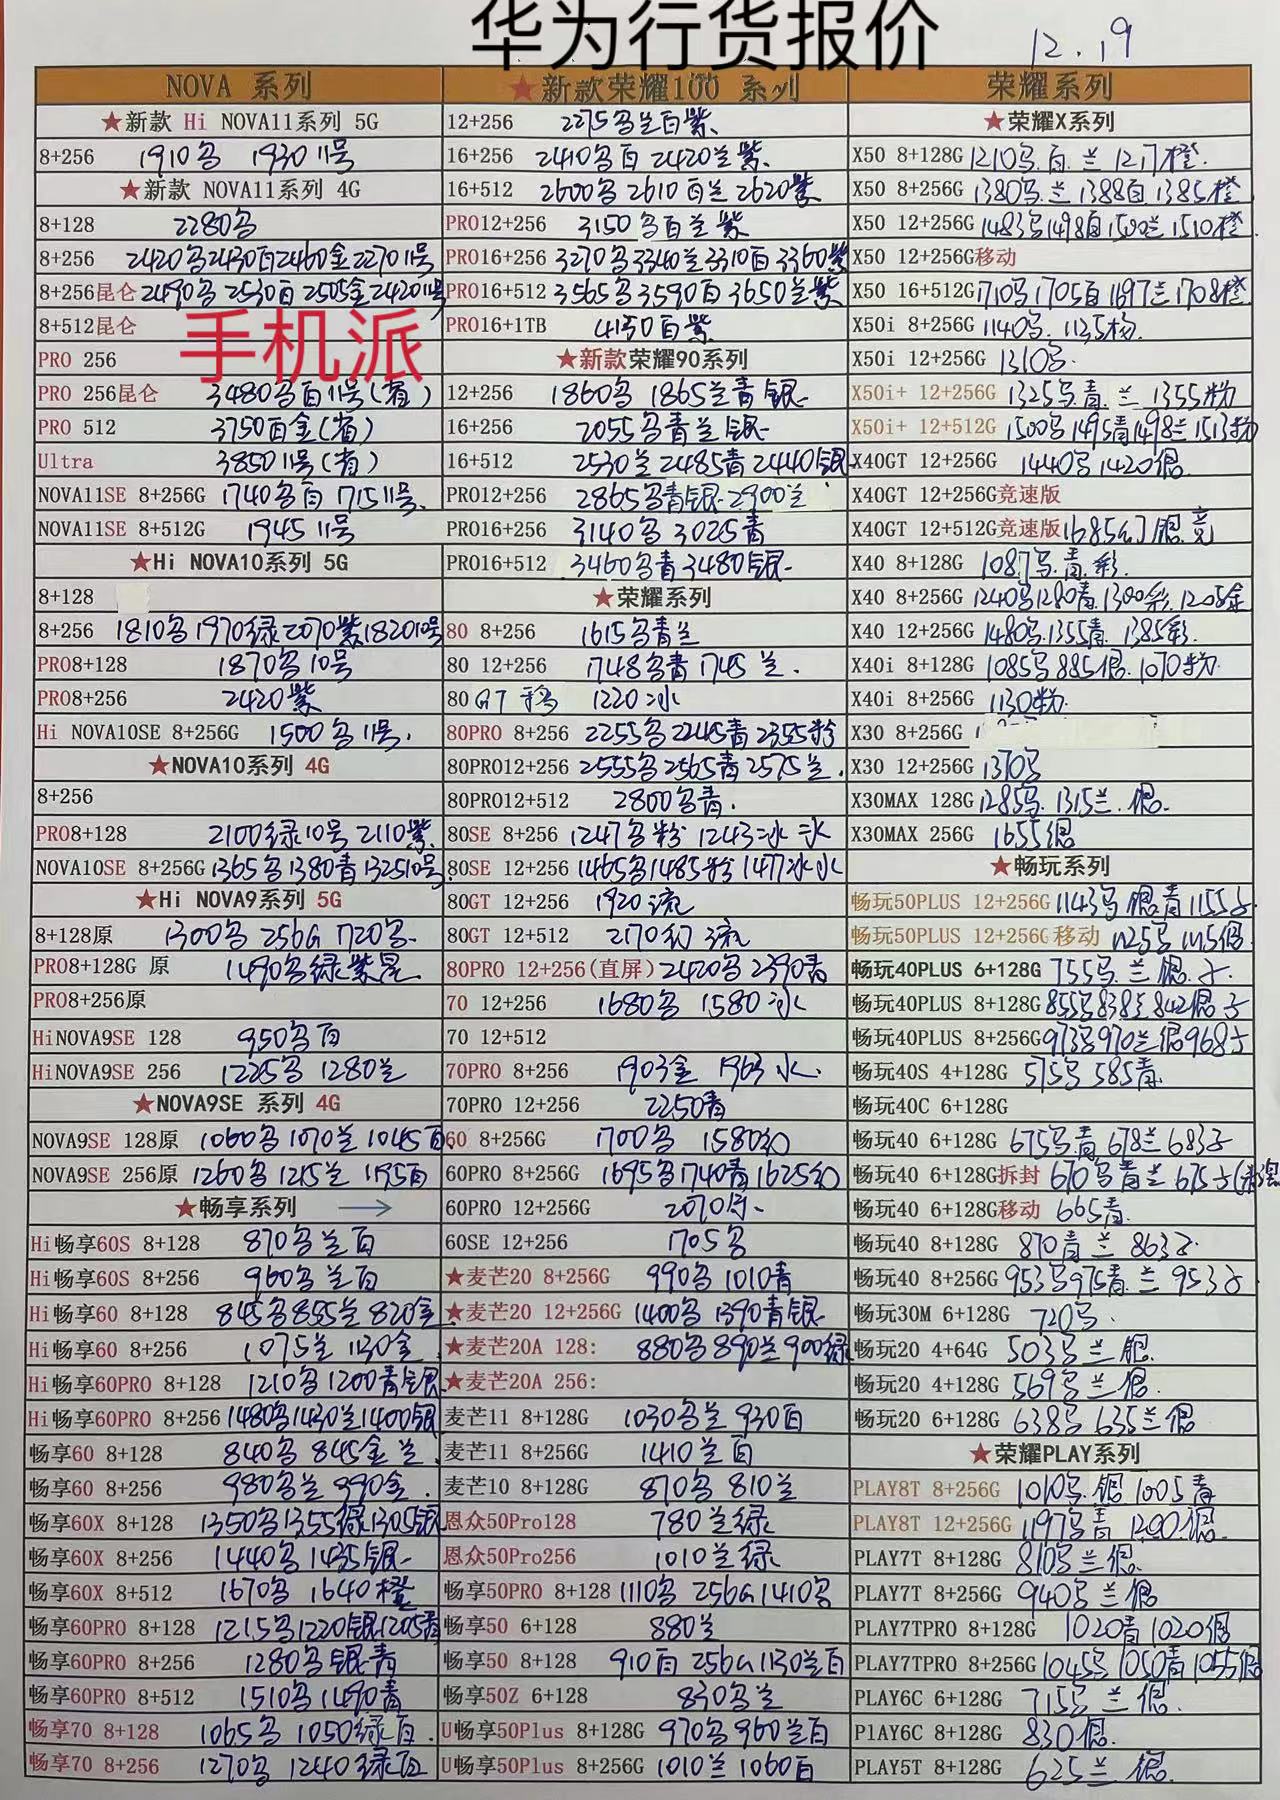 华为行货报价
12.19
NOVA 系列
★新款 Hi NOVA11系列 5G
8+256 1910名 1930 11号
★新款 NOVA11系列 4G
8+128 2280名
8+256 2420名2430百2460金2270 11号
8+256昆仑 2490名 2530百 2505金 2420 11号
手机派
8+512昆仑
PRO 256
PRO 256昆仑 3480名百11号(省)
PRO 512 3750百金(省)
Ultra 3850 11号(省)
NOVA11SE 8+256G 1740名百 1715 11号
NOVA11SE 8+512G 1945 11号
★Hi NOVA10系列 5G
8+128
8+256 1810名1970绿2070紫1820 10号
PRO8+128 1870名10号
PRO8+256 2420紫
Hi NOVA10SE 8+256G 1500名11号.
★NOVA10系列 4G
8+256
PRO8+128 2100绿10号 2110紫
NOVA10SE 8+256G 1365名1380青1325 10号
★Hi NOVA9系列 5G
8+128原 1300名 256G 1720名
PRO8+128G 原 1490名绿紫星
PRO8+256原
HiNOVA9SE 128 950名百
HiNOVA9SE 256 1225名 1280兰
★NOVA9SE 系列 4G
NOVA9SE 128原 1060名1070兰1045百
NOVA9SE 256原 1260名1215兰 1195百
★畅享系列 →
Hi畅享60S 8+128 870名兰百
Hi畅享60S 8+256 960名兰百
Hi畅享60 8+128 845名855兰820金
Hi畅享60 8+256 1075兰 1130金
Hi畅享60PRO 8+128 1210名1200青银
Hi畅享60PRO 8+256 1480名1430兰1400银
畅享60 8+128 840名 845金兰
畅享60 8+256 980名兰 990金
畅享60X 8+128 1350名1355绿1305银
畅享60X 8+256 1440名 1435银
畅享60X 8+512 1670名 1640橙
畅享60PRO 8+128 1215名1220银1205青
畅享60PRO 8+256 1280名银青
畅享60PRO 8+512 1510名1490青
畅享70 8+128 1065名 1050绿百
畅享70 8+256 1270名 1240绿百
★新款荣耀100 系列
12+256 2275名兰百紫
16+256 2410名百 2420兰紫
16+512 2600名 2610百兰 2620紫
PRO12+256 3150名百兰紫
PRO16+256 3270名3340兰3310百3360紫
PRO16+512 3565名3590百3650兰紫
PRO16+1TB 4130百紫
★新款荣耀90系列
12+256 1860名 1865兰青银
16+256 2055名青兰银
16+512 2530兰2485青2440银
PRO12+256 2865名青银2900兰
PRO16+256 3140名 3025青
PRO16+512 3460名青3480银
★荣耀系列
80 8+256 1615名青兰
80 12+256 1748名青 1745 兰.
80 GT 1220冰
80PRO 8+256 2255名2245青2355粉
80PRO12+256 2555名2565青2575兰.
80PRO12+512 2800名青.
80SE 8+256 1247名粉 1243冰 水
80SE 12+256 1465名1485粉1477冰水
80GT 12+256 1920流
80GT 12+512 2170幻 流
80PRO 12+256(直屏) 2420名2390青
70 12+256 1680名 1580冰
70 12+512
70PRO 8+256 1903金 1963水.
70PRO 12+256 2250青
60 8+256G 1700名 1580幻
60PRO 8+256G 1695名1740青1625幻
60PRO 12+256G 2070
60SE 12+256 1705名
★麦芒20 8+256G 990名1010青
★麦芒20 12+256G 1400名1390青银
★麦芒20A 128: 880名890兰900绿
★麦芒20A 256:
麦芒11 8+128G 1030名兰 930百
麦芒11 8+256G 1410兰百
麦芒10 8+128G 870名 810兰
恩众50Pro128 780兰绿
恩众50Pro256 1010兰绿
畅享50PRO 8+128 1110名 256G1410名
畅享50 6+128 880兰
畅享50 8+128 910百 256G1130兰百
畅享50Z 6+128 830名兰
U畅享50Plus 8+128G 970名960兰百
U畅享50Plus 8+256G 1010兰1060百
荣耀系列
★荣耀X系列
X50 8+128G 1210名.百.兰 1217橙.
X50 8+256G 1380名.兰 1388百 1385橙
X50 12+256G 1483名1498百1500兰1510橙
X50 12+256G移动
X50 16+512G 1710名1705百1697兰1708橙
X50i 8+256G 1140名. 1135粉
X50i 12+256G 1310名.
X50i+ 12+256G 1325名青. 兰 1355粉
X50i+ 12+512G 1500名1495青1498兰1513粉
X40GT 12+256G 1440名1420银
X40GT 12+256G竞速版
X40GT 12+512G竞速版 1685幻银.竞
X40 8+128G 1087名.青.彩.
X40 8+256G 1240名1280青.1300彩.1205金
X40 12+256G 1480名.1355青. 1385彩.
X40i 8+128G 1085名885银.1070粉
X40i 8+256G 1130粉.
X30 8+256G
X30 12+256G 1370名
X30MAX 128G 1285名.1315兰.银.
X30MAX 256G 1655银
★畅玩系列
畅玩50PLUS 12+256G 1143名.银青1155
畅玩50PLUS 12+256G 移动 1125名
畅玩40PLUS 6+128G 755名.兰.银.
畅玩40PLUS 8+128G 855名838兰842银
畅玩40PLUS 8+256G 973名970兰银968
畅玩40S 4+128G 575名 585青.
畅玩40C 6+128G
畅玩40 6+128G 675名青 678兰 683
畅玩40 6+128G拆封 670名青兰 675
畅玩40 6+128G移动 665青.
畅玩40 8+128G 870青 兰 863
畅玩40 8+256G 953名975青.兰 953
畅玩30M 6+128G 720名.
畅玩20 4+64G 503名兰银.
畅玩20 4+128G 569名兰银.
畅玩20 6+128G 638名 635兰银
★荣耀PLAY系列
PLAY8T 8+256G 1010名.银 1005青
PLAY8T 12+256G 1197名青 1200银.
PLAY7T 8+128G 810名兰银.
PLAY7T 8+256G 940名兰银
PLAY7TPRO 8+128G 1020青1020银
PLAY7TPRO 8+256G 1045名1050青1055银
PLAY6C 6+128G 715名兰银.
PlAY6C 8+128G 830银.
PLAY5T 8+128G 625兰银.